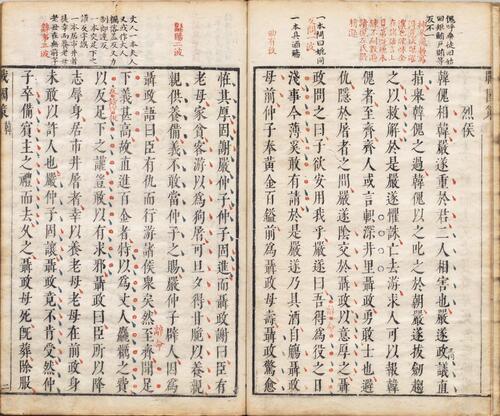 烈侯
韓傀相韓嚴遂重於君二人相害也嚴遂政議直
指舉韓傀之過韓傀以之叱之於朝嚴遂拔劒趨
之以救解於是嚴遂懼誅亡去游求人可以報韓
傀者至齊齊人或言軹深井里聶政勇敢士也避
仇隱於屠者之間嚴遂陰交於聶政以意厚之聶
政問之曰子欲安用我乎嚴遂曰吾得爲役之日
淺事今薄奚敢有請於是嚴遂乃具酒自觴聶政
母前仲子奉黃金百鎰前爲聶政母壽聶政驚愈
一本問曰姚同
一本具酒觴
怪其厚固謝嚴仲子仲子固進而聶政謝曰臣有
老母家貧客游以爲狗屠可旦夕得甘脆以養親
親供養備義不敢當仲子之賜嚴仲子辟人因爲
聶政語曰臣有仇而行游諸侯衆矣然至齊聞足
下義甚高故直進百金者特以爲丈人麤糲之費
以交足下之讙豈敢以有求邪聶政曰臣所以降
志辱身居市井屠者幸以養老母老母在前政身
未敢以許人也嚴仲子固讓聶政竟不肯受然仲
子卒備賓主之禮而去久之聶政母死旣葬除服
丈人一本夫人
辭令
戰國策
韓
二